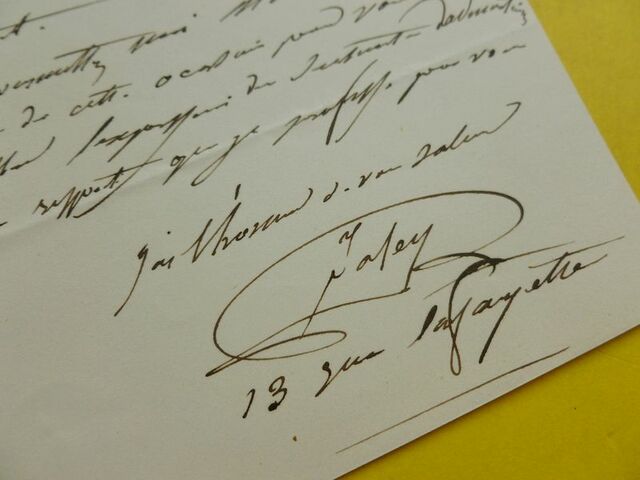 permettez moi
de cette occasion pour vous
l'expression des sentiments d'admiration
respect que je professe pour vous
j'ai l'honneur de vous saluer
Jaley
13 rue lafayette